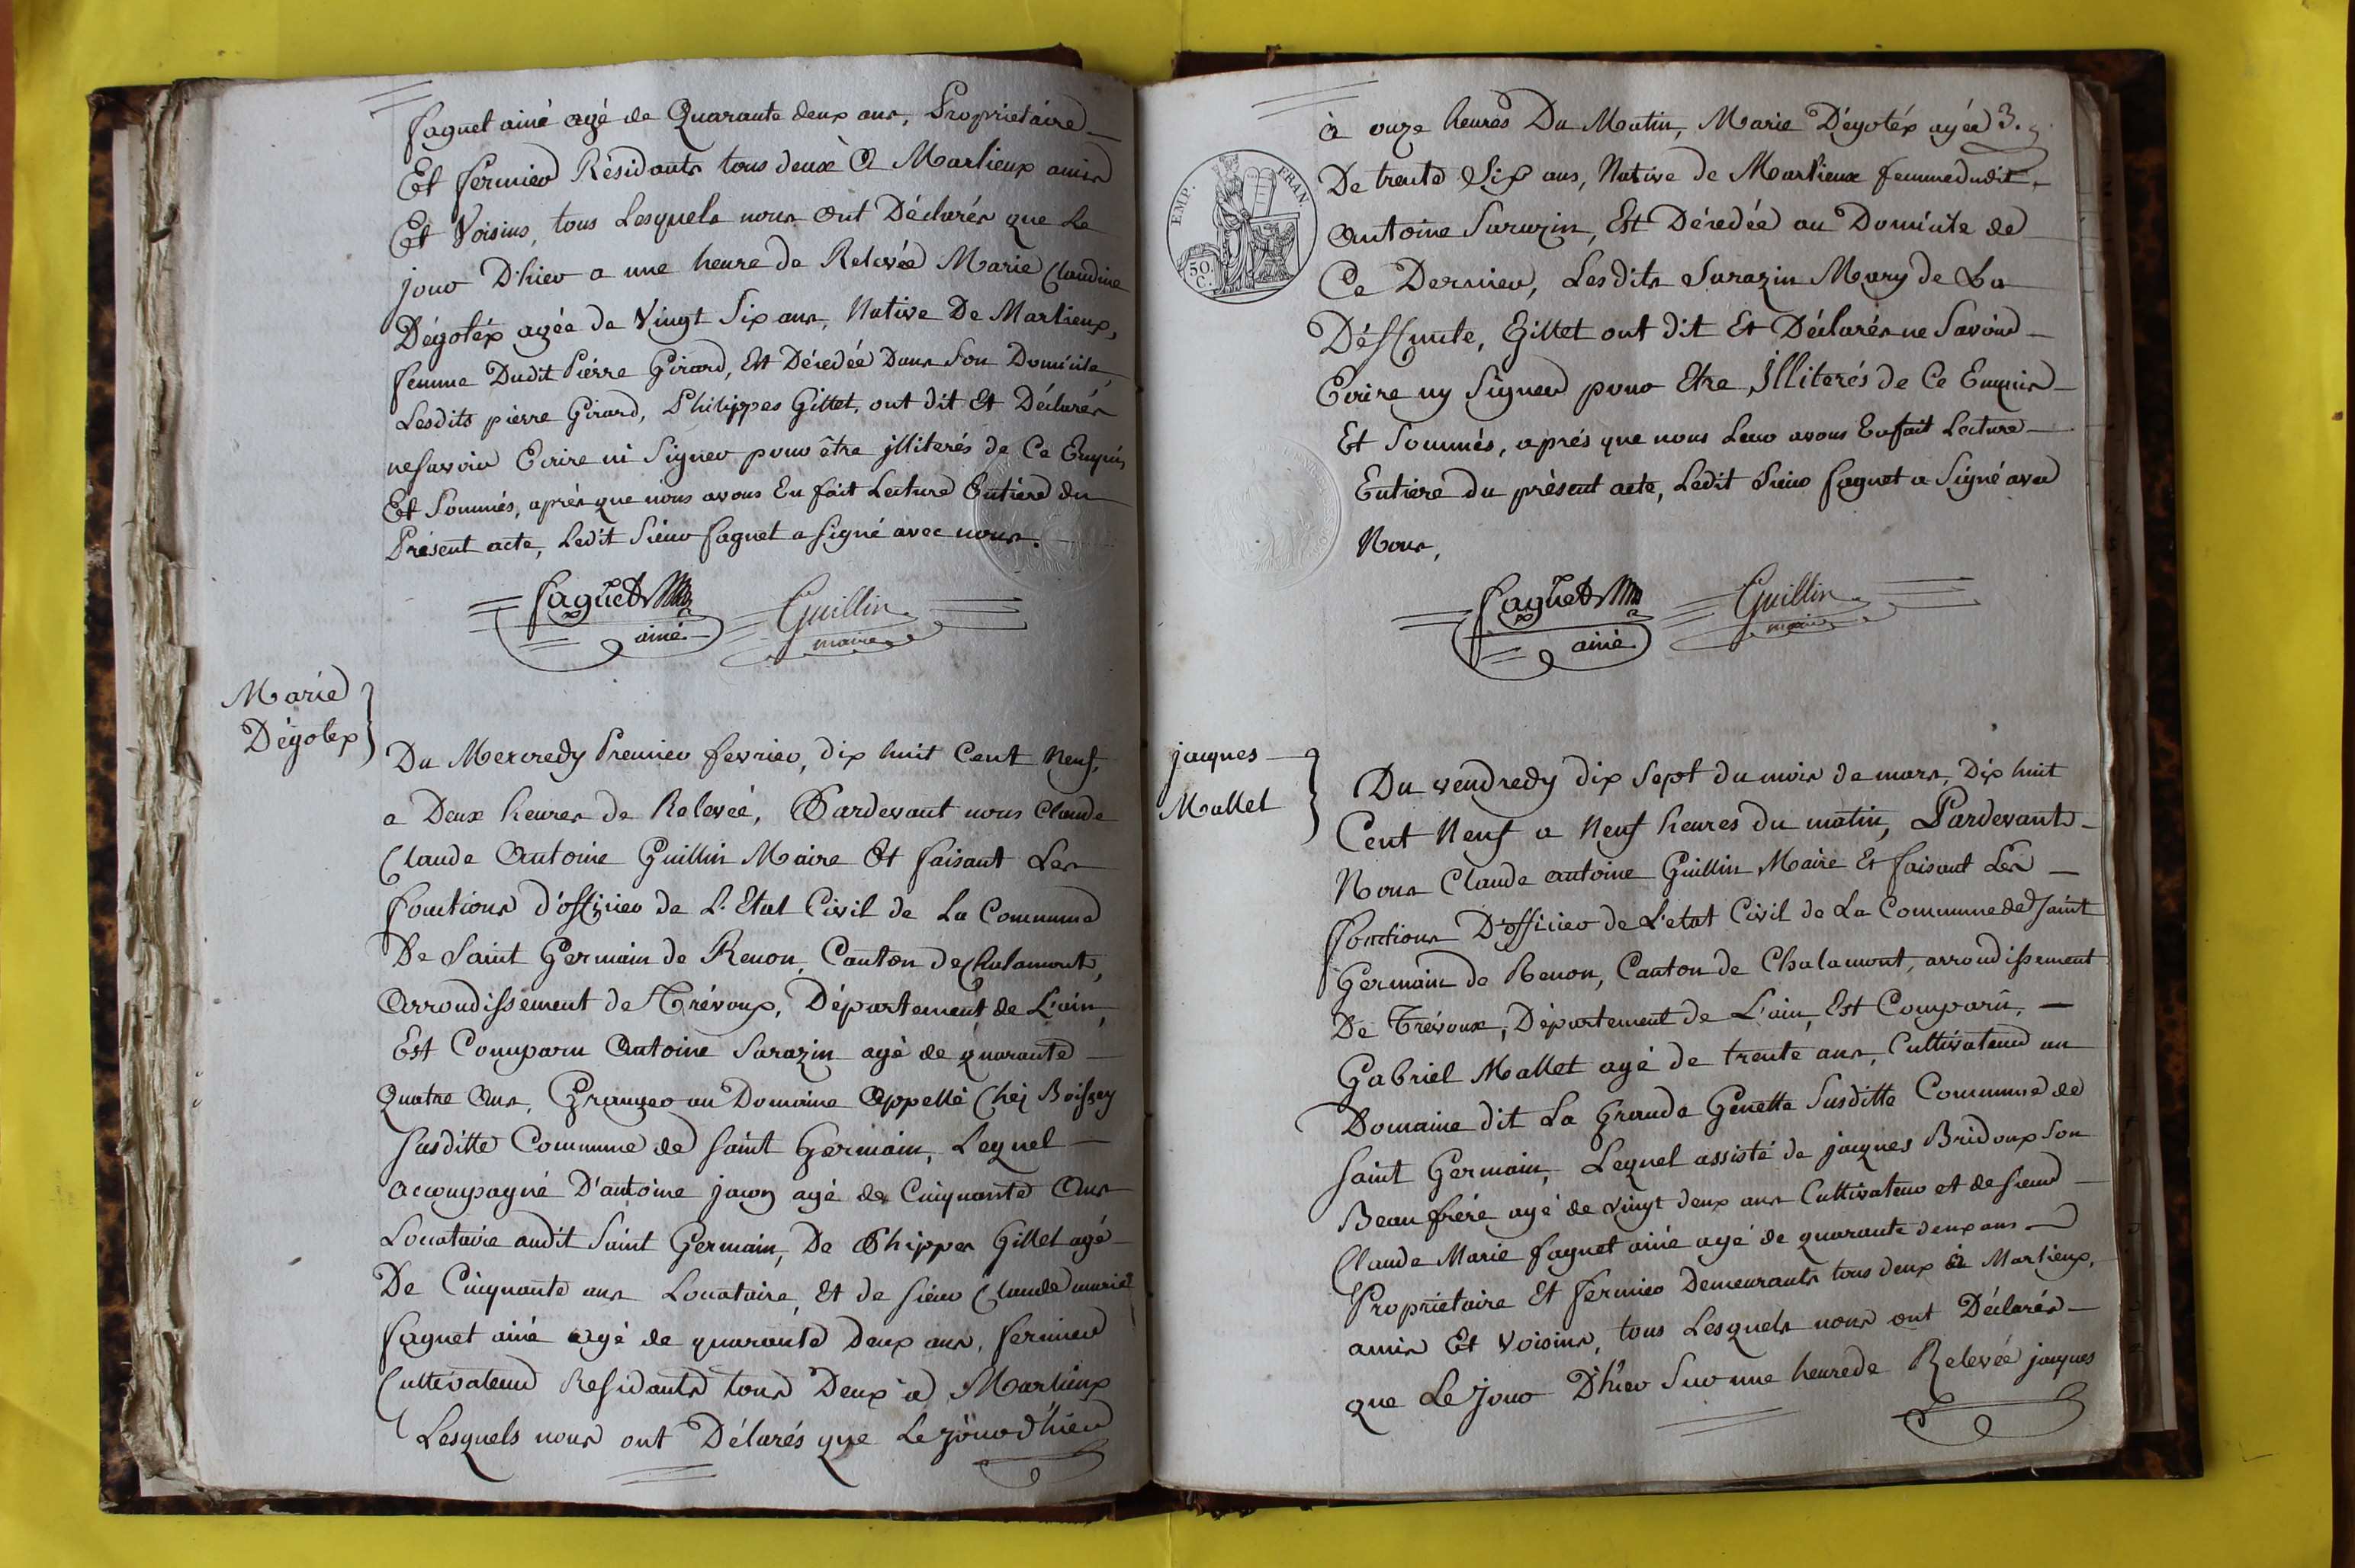 faguet ainé agé de Quarante deux ans, Proprietaire
Et fermier Résidants tous deux à Marlieux amis
Et Voisins, tous Lesquels nous ont Déclarés que Le
jour D'hier a une heure de Relevée Marie Claudine
Dégoléx agée de Vingt Six ans, Native De Marlieux,
femme Dudit Pierre Girard, Est Décédée Dans Son Domicile,
Lesdits pierre Girard, Philippes Gillet, ont dit Et Déclarés
ne savoir Ecrire ni Signer pour être jlliterés de Ce Enquis
Et Sommés, après que nous avons Eu fait Lecture Entière du
Présent acte, Ledit Sieur faguet a signé avec nous.
faguet
ainé
Guillin
maire
Marie
Dégolex
Du Mercredy Premier fevrier, dix huit Cent Neuf,
a Deux heures de Relevée, Pardevant nous Claude
Claude Antoine Guillin Maire Et faisant Les
fonctions d'officier de L'Etat Civil de La Commune
De Saint Germain de Renon, Canton de Chalamont,
Arrondissement de Trévoux, Département de L'ain,
Est Comparu Antoine Sarazin agé de quarante
Quatre Ans, Granger au Domaine Appellé Chéz Boissey
Susditte Commune de Saint Germain, Lequel
accompagné D'antoine jacon agé de Cinquante Ans
Locataire audit Saint Germain, De Phippes Gillet agé
De Cinquante ans Locataire, Et de Sieur Claude marie
faguet ainé agé de quarante Deux ans, fermier
Cultivateur Residants tous Deux à Marlieux
Lesquels nous ont Délarés que Le jour d'hier
3.
à onze heures Du Matin, Marie Dégoléx agée
De trente Six ans, Native de Marlieux femme dudit
Antoine Sarazin, Est Décédée au Domicile de
Ce Dernier, Lesdits Sarazin Mary de La
Déffunte, Gillet ont dit Et Déclarés ne Savoir
Ecrire ny Signer pour Etre Jlliterés de Ce Enquis
Et Sommés, aprés que nous Leur avons Eu fait Lecture
Entiere du présent acte, Ledit Sieur faguet a Signé avec
Nous,
EMP. FRAN.
50.
C.
faguet
ainé
Guillin
maire
jacques
Mallet
Du vendredy dix Sept du mois de mars, Dix huit
Cent Neuf a Neuf heures du matin, Pardevant
Nous Claude antoine Guillin Maire Et faisant Les
fonctions D'officier de L'etat Civil de La Commune de Saint
Germain de Renon, Canton de Chalamont, arrondissement
De Trévoux, Département de L'ain, Est Comparû,
Gabriel Mallet agé de trente ans, Cultivateur au
Domaine dit La Grande Genette Susditte Commune de
Saint Germain, Lequel assisté de jacques Bridoux Son
Beau frére agé de vingt deux ans Cultivateur et de Sieur
Claude Marie faguet ainé agé de quarante deux ans
Proprietaire Et fermier Demeurants tous deux à Marlieux,
amis Et Voisins, tous Lesquels nous ont Déclarés
que Le Jour D'hier Sur une heure de Relevée jacques